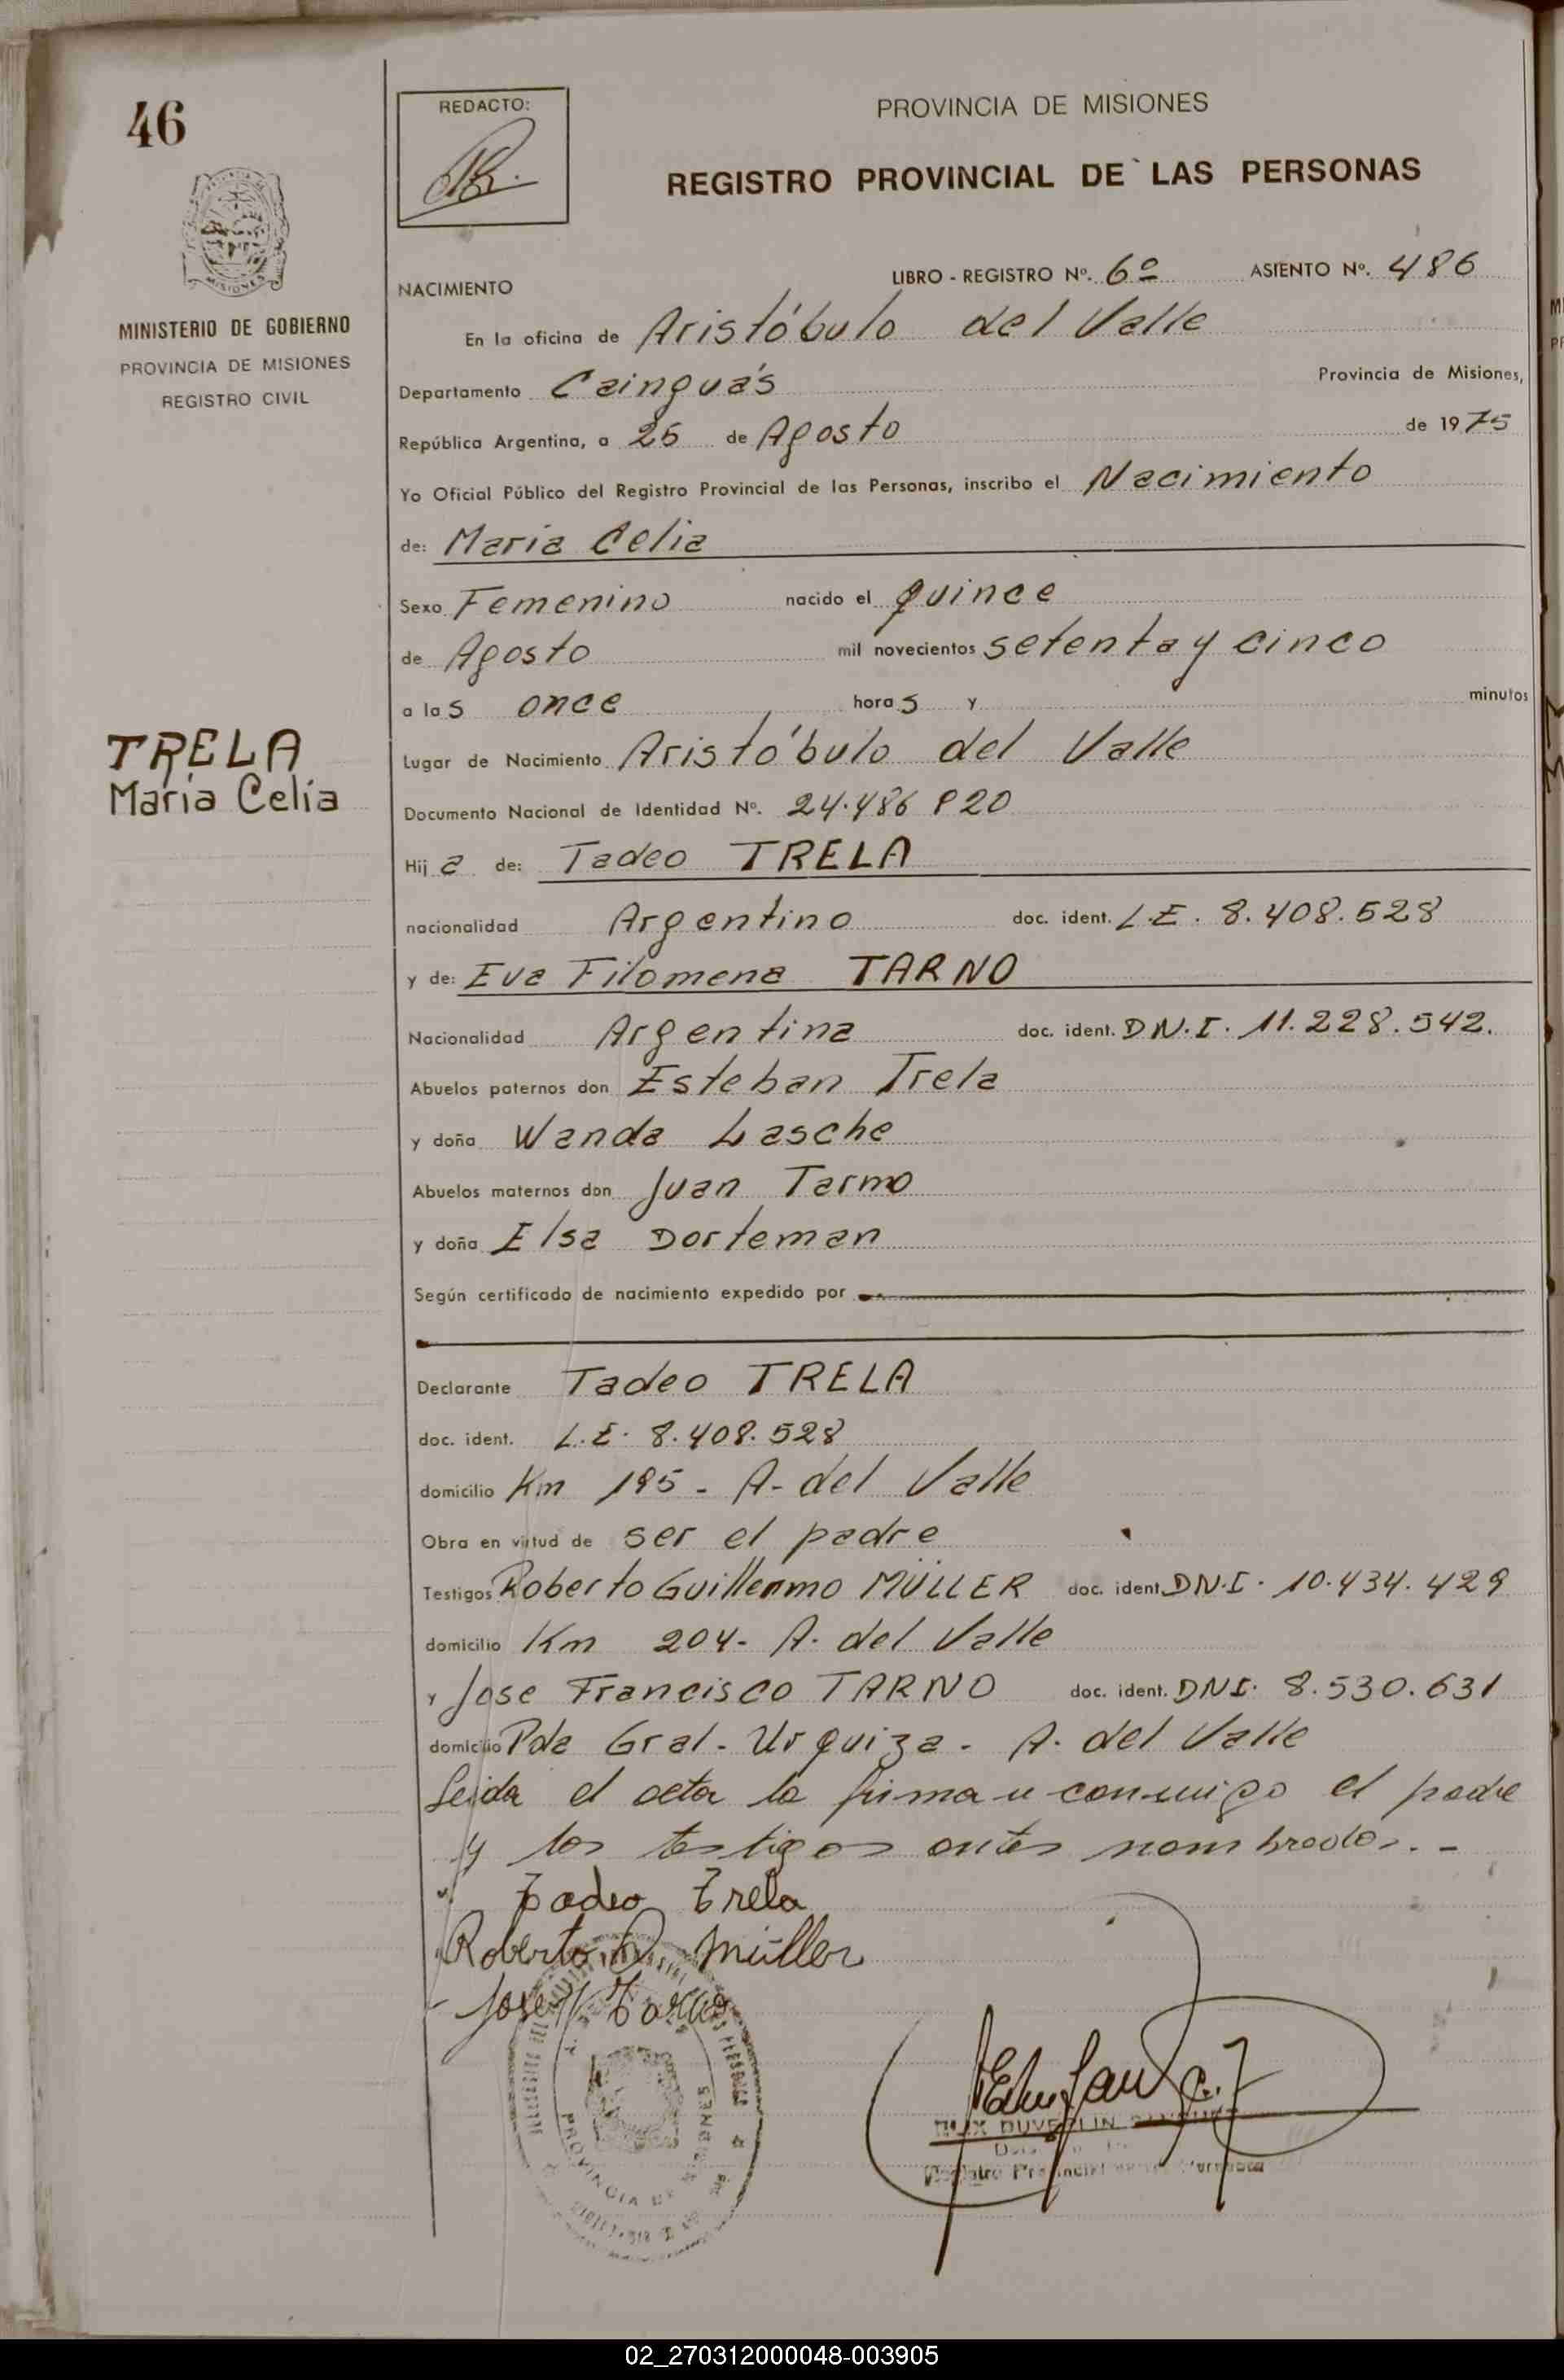 46
REDACTO:
PROVINCIA DE MISIONES
REGISTRO PROVINCIAL DE LAS PERSONAS
MISIONES
MINISTERIO DE GOBIERNO
PROVINCIA DE MISIONES
REGISTRO CIVIL
NACIMIENTO
LIBRO - REGISTRO Nº. 6º ASIENTO Nº. 486
En la oficina de Aristóbulo del Valle
Departamento Cainguás Provincia de Misiones,
República Argentina, a 25 de Agosto de 1975
Yo Oficial Público del Registro Provincial de las Personas, inscribo el Nacimiento
de: Maria Celia
Sexo Femenino nacido el quince
de Agosto mil novecientos setenta y cinco
a las once horas y minutos
TRELA
María Celia
Lugar de Nacimiento Aristóbulo del Valle
Documento Nacional de Identidad Nº. 24.486 920
Hija de: Tadeo TRELA
nacionalidad Argentino doc. ident. L.E. 8.408.528
y de: Eva Filomena TARNO
Nacionalidad Argentina doc. ident. D.N.I. 11.228.542.
Abuelos paternos don Esteban Trela
y doña Wanda Lasche
Abuelos maternos don Juan Tarno
y doña Elsa Dorteman
Según certificado de nacimiento expedido por
Declarante Tadeo TRELA
doc. ident. L.E. 8.408.528
domicilio Km 195 - A. del Valle
Obra en virtud de ser el padre
Testigos Roberto Guillermo MÜLLER doc. ident. D.N.I. 10.434.429
domicilio Km 204 - A. del Valle
y Jose Francisco TARNO doc. ident. DNI. 8.530.631
domicilio Pda Gral. Urquiza - A. del Valle
Leida el acta la firman conmigo el padre
y los testigos antes nombrados. -
Tadeo Trela
Roberto G. Müller
Jose Tarno
PROVINCIA DE MISIONES
Registro Provincial de las Personas
02_270312000048-003905